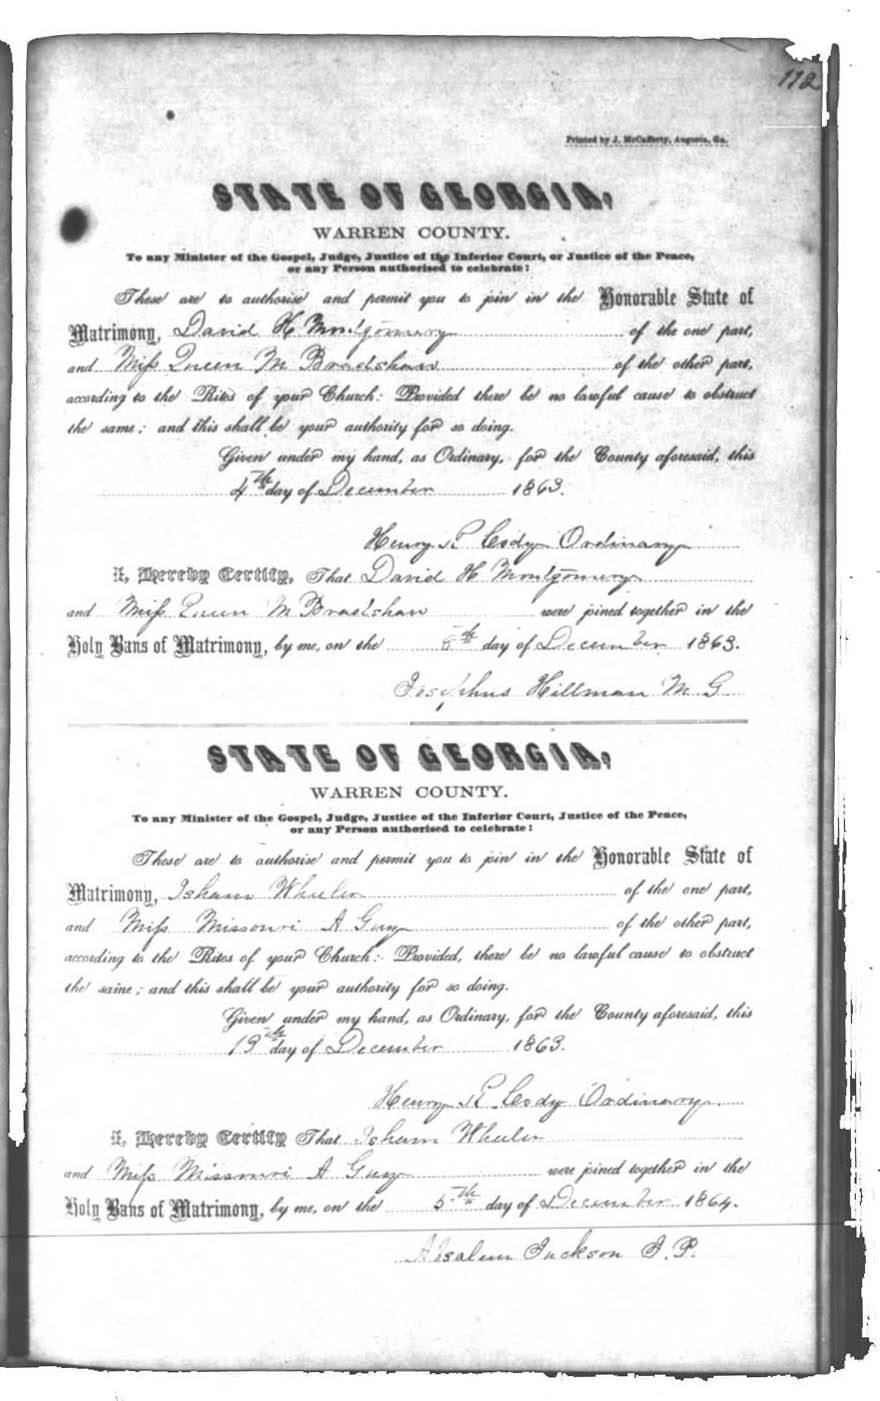 112
Printed by J. McCafferty, Augusta, Ga.
STATE OF GEORGIA,
WARREN COUNTY.
To any Minister of the Gospel, Judge, Justice of the Inferior Court, or Justice of the Peace,
or any Person authorised to celebrate:
These are to authorise and permit you to join in the Honorable State of
Matrimony, David H Montgomery of the one part,
and Miss Queen M Bradshaw of the other part,
according to the Rites of your Church: Provided there be no lawful cause to obstruct
the same; and this shall be your authority for so doing.
Given under my hand, as Ordinary, for the County aforesaid, this
4th day of December 1863.
Henry R Cody Ordinary
I, Hereby Certify, That David H Montgomery
and Miss Queen M Bradshaw were joined together in the
Holy Bans of Matrimony, by me, on the day of December 1863.
Josephus Hillman M G
STATE OF GEORGIA,
WARREN COUNTY.
To any Minister of the Gospel, Judge, Justice of the Inferior Court, Justice of the Peace,
or any Person authorised to celebrate:
These are to authorise and permit you to join in the Honorable State of
Matrimony, Isham Wheeler of the one part,
and Miss Missouri A Guy of the other part,
according to the Rites of your Church: Provided, there be no lawful cause to obstruct
the same; and this shall be your authority for so doing.
Given under my hand, as Ordinary, for the County aforesaid, this
19th day of December 1863.
Henry R. Cody Ordinary.
I, Hereby Certify That Isham Wheeler
and Miss Missouri A Guy were joined together in the
Holy Bans of Matrimony, by me, on the 5th day of December 1864.
Absalum Jackson J.P.